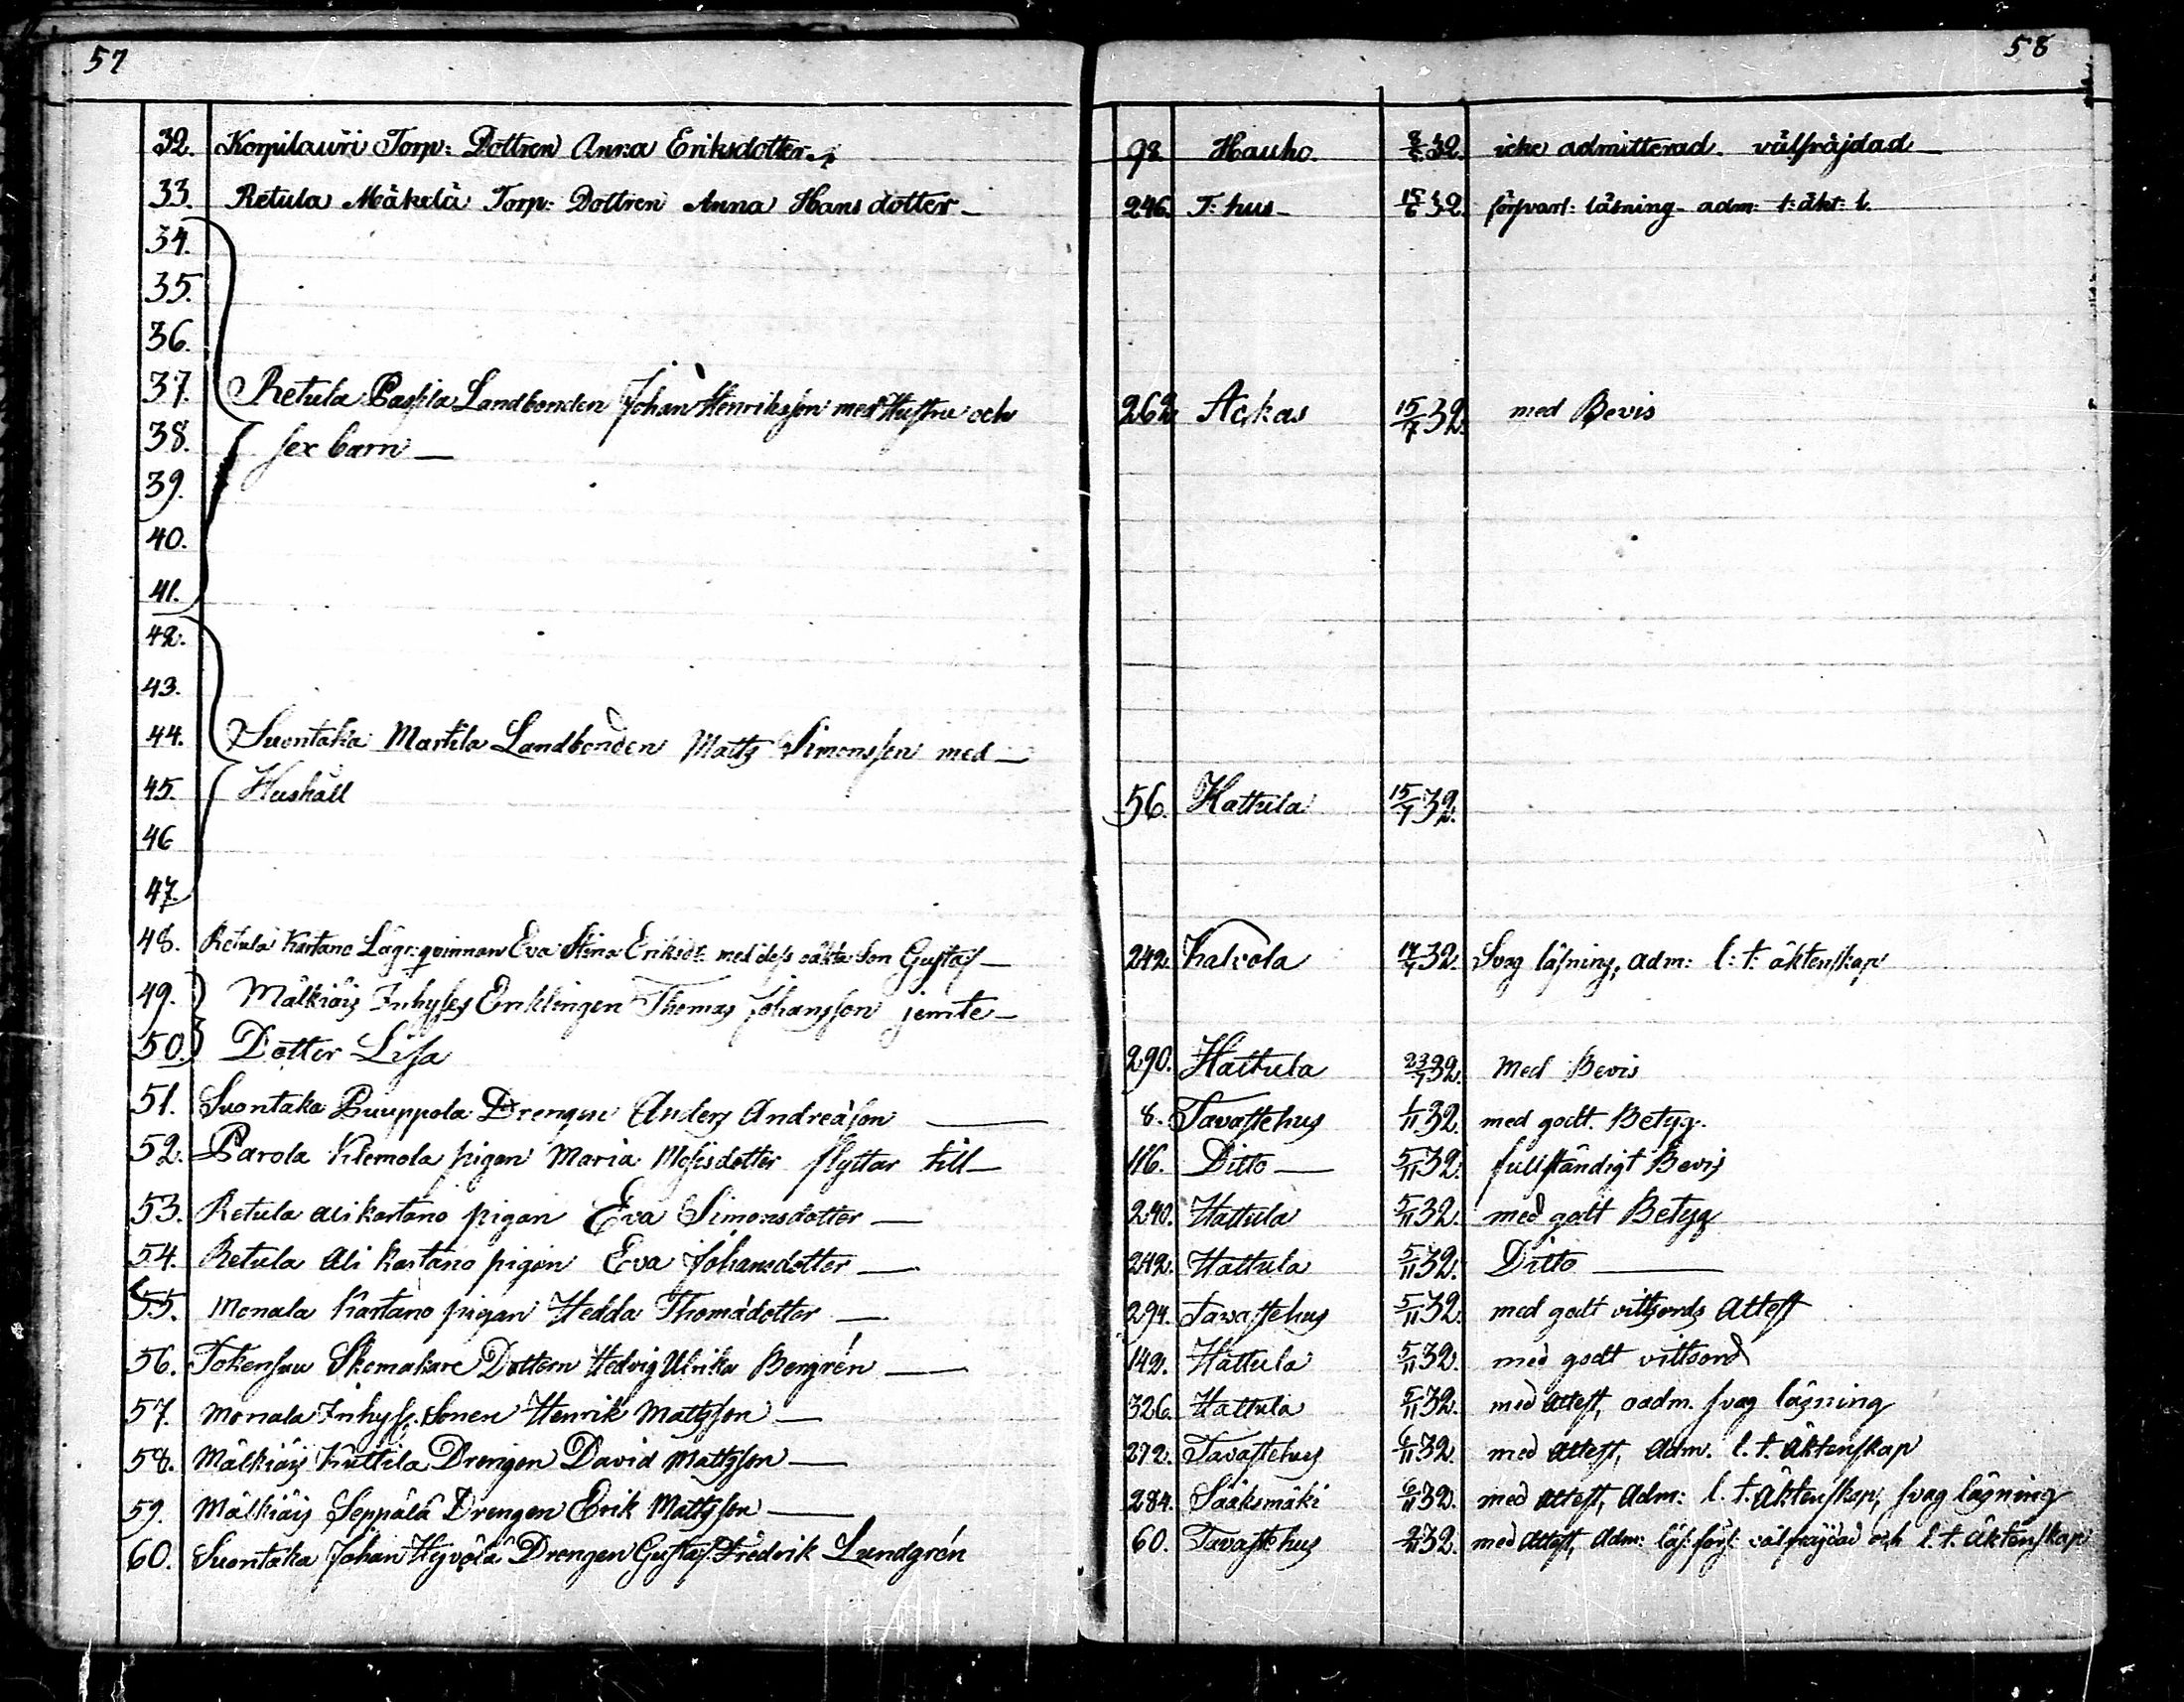 57
58
32. Korpilauri Torp: Dottren Anna Eriksdotter. 98 Hauho. 32. icke admitterad. välfräjdad
33. Retula Mäkelä Torp: Dottren Anna Hansdotter 246. T:hus 15/6 32. försvarl: läsning adm: l: äkt: l.
34.
35.
36.
37. Retula Passila Landbonden Johan Henriksson med Hustru och 262 Ackas 15/7 32. med Bevis
38. sex barn
39.
40.
41.
42.
43.
44. Suontaka Martila Landbonden Matts Simonsson med
45. Hushåll 56. Hattula 15/7 32.
46
47.
48. Retula Kartano Lägr: qvinnan Eva Stina Eriksdt: med dess oäkta Son Gustaf 242. Kalvola 17/7 32. Svag läsning, adm: l: t: äktenskap
49. Mälkiäis Inhyses Enklingen Thomas Johansson jemte
50. Dotter Lisa 290. Hattula 23/7 32. Med Bevis
51. Suontaka Puuppola Drengen Anders Andreäson 8. Tavastehus 1/11 32. med godt Betyg.
52. Parola Klemola pigan Maria Mossisdotter flyttar till 116. Ditto 5/11 32. fullständigt Bevis
53. Retula Alikartano pigan Eva Simonsdotter 240. Hattula 5/11 32. med godt Betyg
54. Retula Ali Kartano pigan Eva Johansdotter 242. Hattula 5/11 32. Ditto
55. Monala Kartano pigan Hedda Thomädotter 294. Tavastehus 5/11 32. med godt vittsords Attest
56. Skomakare Dottern Hedvig Ulrika Bergrén 142. Hattula 5/11 32. med godt vittsord
57. Monala Inhyss. Sonen Henrik Mattsson 326. Hattula 5/11 32. med Attest, oadm. svag läsning
58. Mälkiäis Kuttila Drengen David Mattsson 272. Tavastehus 6/11 32. med Attest, Adm. l. t. Äktenskap
59. Mälkiäis Seppälä Drengen Erik Mattsson 284. Sääksmäki 6/11 32. med Attest, Adm: l. t. Äktenskap, svag läsning
60. Suontaka Johan Hyvölä Drengen Gustaf Fredrik Lundgrén 60. Tavastehus 32. med Attest, Adm: läs: förs: välfräjdad och l. t. Äktenskap